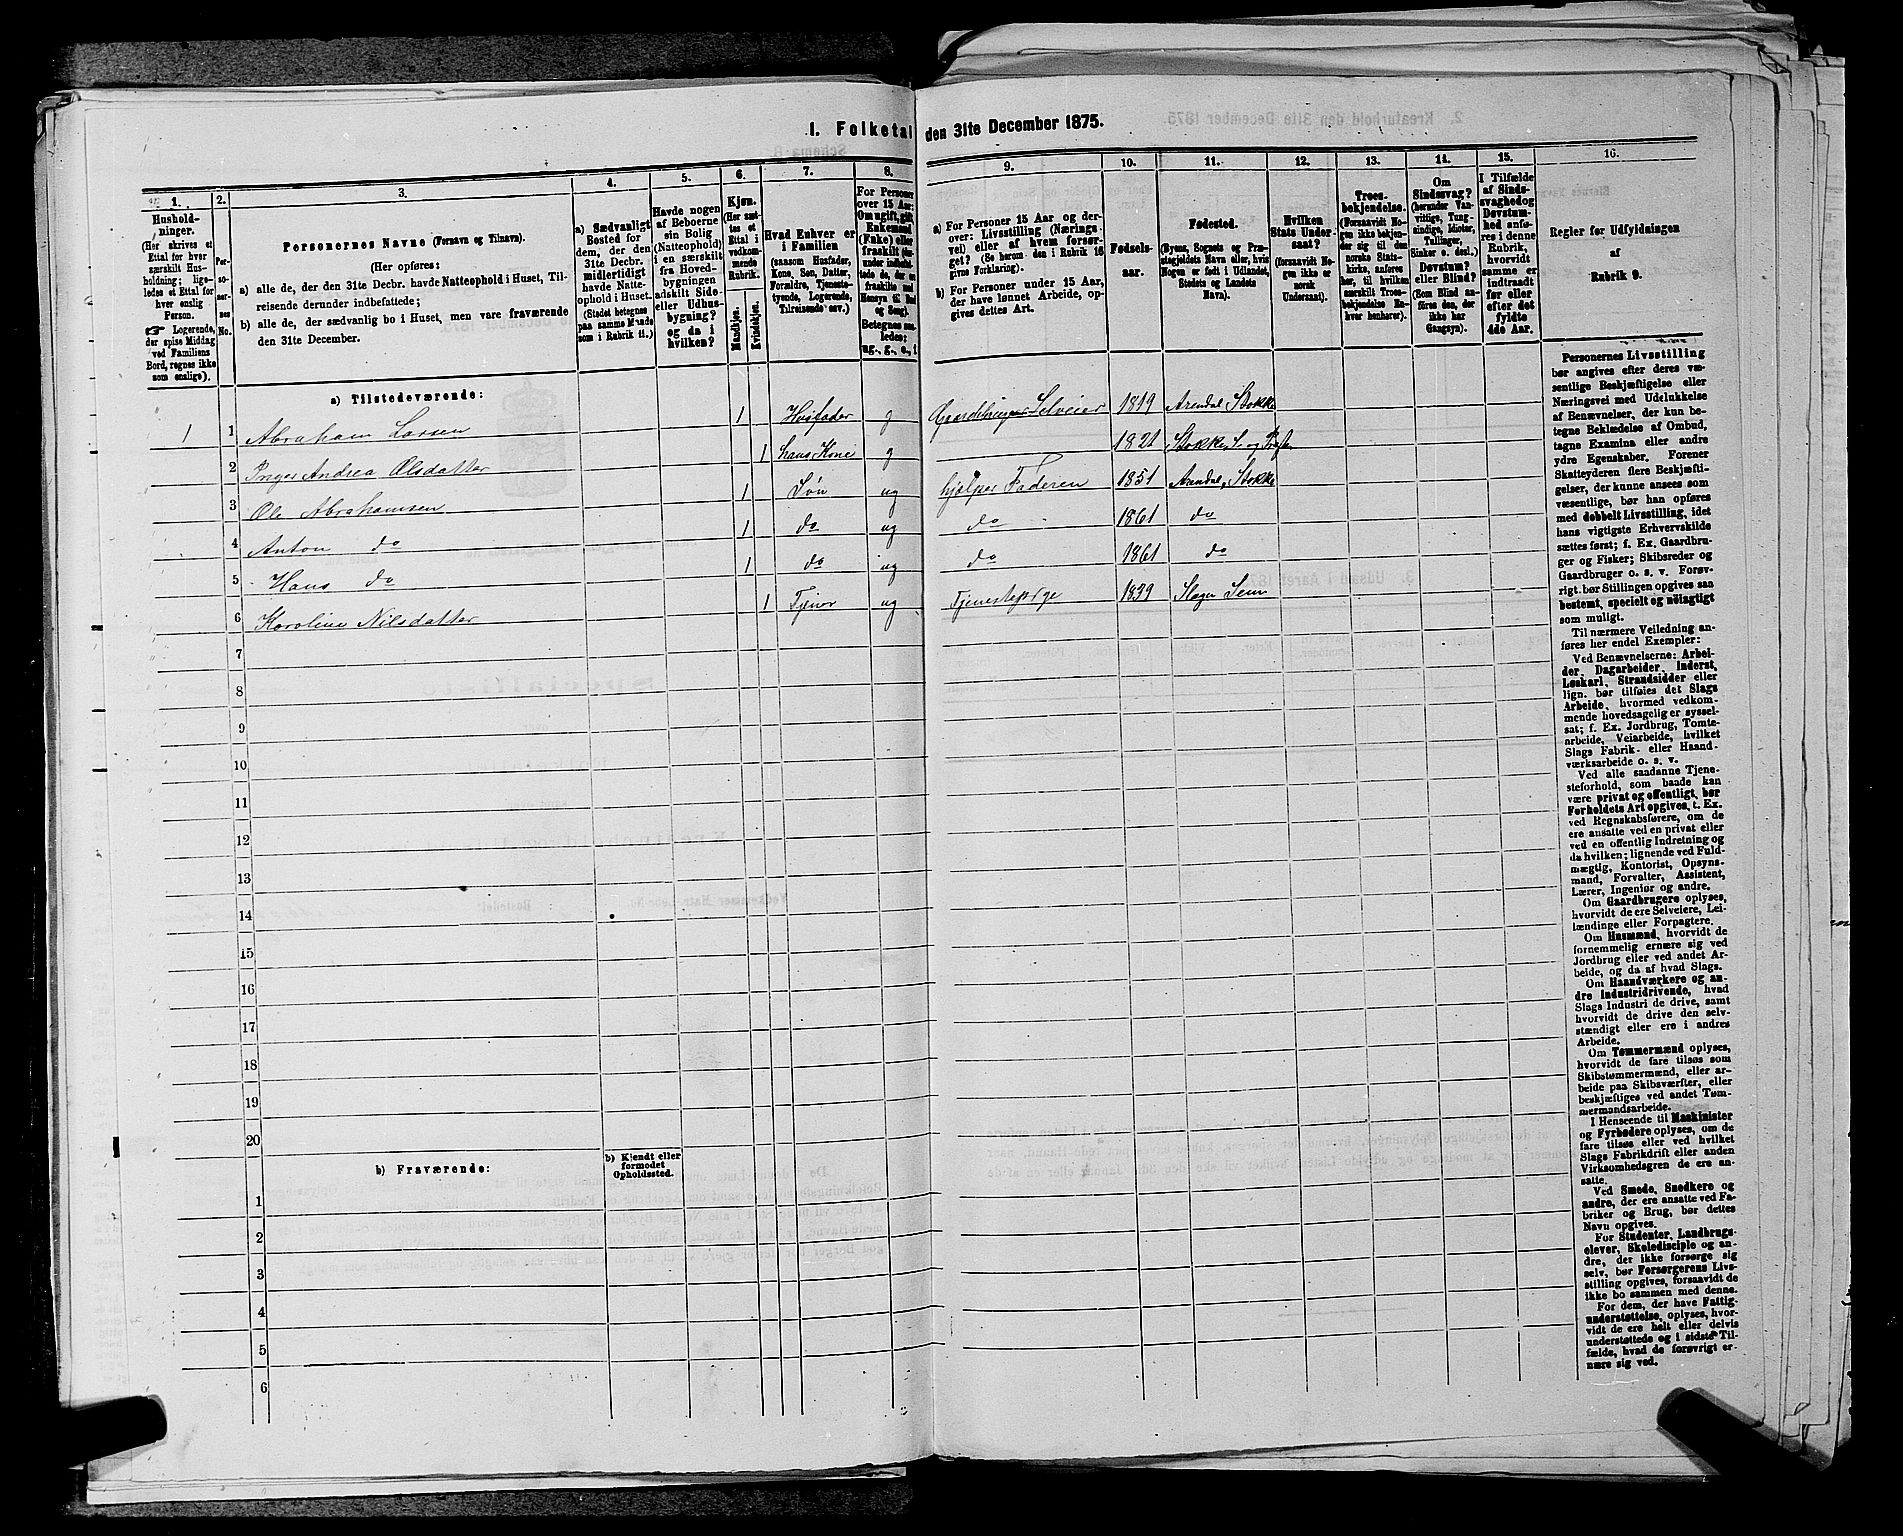 I. Folketal den 31te December 1875.
1. 2. 3. 4. 5. 6. 7. 8. 9. 10. 11. 12. 13. 14. 15. 16.
Hushold-
ninger.
(Her skrives et
Ettal for hver
særskilt Hus-
holdning; lige-
ledes et Ettal for
hver enslig
Person.
☞ Logerende,
der spise Middag
ved Familiens
Bord, regnes ikke
som enslige).
Per-
so-
ner-
nes
No.
Personernes Navne (Fornavn og Tilnavn).
(Her opføres:
a) alle de, der den 31te Decbr. havde Natteophold i Huset, Til-
reisende derunder indbefattede;
b) alle de, der sædvanlig bo i Huset, men vare fraværende
den 31te December.
a) Sædvanligt
Bosted for
dem, der den
31te Decbr.
midlertidigt
havde Natte-
ophold i Huset.
(Stedet betegnes
paa samme Maade
som i Rubrik 11.)
Havde nogen
af Beboerne
sin Bolig
(Natteophold)
i en særskilt
fra Hoved-
bygningen
adskilt Side-
eller Udhus-
bygning?
og da i
hvilken?
Kjøn.
(Her sæt-
tes et
Ettal i
vedkom-
mende
Rubrik.
Mandkjøn.
Kvindekjøn.
Hvad Enhver er
i Familien
(saasom Husfader,
Kone, Søn, Datter,
Forældre, Tjeneste-
tyende, Logerende,
Tilreisende osv.)
For Personer
over 15 Aar:
Om ugift, gift,
Enkemand
(Enke) eller
fraskilt
Betegnes saa-
ledes:
ug., g., e., f.
a) For Personer 15 Aar og der-
over: Livsstilling (Nærings-
vei) eller af hvem forsør-
get? (Se herom den i Rubrik 16
givne Forklaring).
b) For Personer under 15 Aar,
der have lønnet Arbeide, op-
gives dettes Art.
Fødsels-
aar.
Fødested.
(Byens, Sognets og Præ-
stegjeldets Navn eller, hvis
Nogen er født i Udlandet,
Stedets og Landets
Navn).
Hvilken
Stats Under-
saat?
(forsaavidt No-
gen ikke er
norsk
Undersaat).
Troes-
bekjendelse.
(Forsaavidt No-
gen ikke bekjen-
der sig til den
norske Stats-
kirke, anføres
her, til hvilken
særskilt Troes-
bekjendelse En-
hver henhører).
Om
Sindssvag?
(herunder Van-
vittige, Tung-
sindige, Idioter,
Tullinger,
Sinker o. desl.)
Døvstum?
eller Blind?
(Som Blind an-
føres den, der
ikke har
Gangsyn).
I Tilfælde
af Sinds-
svaghed og
Døvstum-
hed anfø-
res i denne
Rubrik,
hvorvidt
samme er
indtraadt
før eller
efter det
fyldte
4de Aar.
Regler for Udfyldningen
af
Rubrik 9.
a) Tilstedeværende:
1 1 Abraham Larsen 1 Husfader g Gaardbruger Selveier 1819 Arendal, Stokke
2 Inger Andrea Olsdatter 1 hans Kone g 1821 Stokke S. og
3 Ole Abrahamsen 1 Søn ug hjelper Faderen 1851 Arendal, Stokke
4 Anton do 1 do ug do 1861 do
5 Hans do 1 do ug do 1861 do
6 Karoline Nilsdatter 1 Tjener ug Tjenestepige 1839 Slagen Sem
7
8
9
10
11
12
13
14
15
16
17
18
19
20
b) Fraværende:
b) Kjendt eller
formodet
Opholdssted.
1
2
3
4
5
6
Personernes Livsstilling
bør angives efter deres væ-
sentlige Beskjæftigelse eller
Næringsvei med Udelukkelse
af Benævnelser, der kun be-
tegne Beklædelse af Ombud,
tagne Examina eller andre
ydre Egenskaber. Forener
Skatteyderen flere Beskjæfti-
gelser, der kunne ansees som
væsentlige, bør han opføres
med dobbelt Livsstilling, idet
hans vigtigste Erhvervskilde
sættes først; f. Ex. Gaardbru-
ger og Fisker; Skibsreder og
Gaardbruger o. s. v. Forøv-
rigt bør Stillingen opgives saa
bestemt, specielt og nøiagtigt
som muligt.
Til nærmere Veiledning an-
føres her endel Exempler:
Ved Benævnelserne: Arbei-
der, Dagarbeider, Inderst,
Løskarl, Strandsidder eller
lign. bør tilføies det Slags
Arbeide, hvormed vedkom-
mende hovedsagelig er syssel-
sat; f. Ex. Jordbrug, Tomte-
arbeide, Veiarbeide, hvilket
Slags Fabrik- eller Haand-
værksarbeide o. s. v.
Ved alle saadanne Tjene-
steforhold, som baade kan
være privat og offentligt, bør
Forholdets Art opgives, t. Ex.
ved Regnskabsførere, om de
ere ansatte ved en privat eller
ved en offentlig Indretning og
da hvilken; lignende ved Fuld-
mægtig, Kontorist, Opsyns-
mand, Forvalter, Assistent,
Lærer, Ingeniør og andre.
Om Gaardbrugere oplyses,
hvorvidt de ere Selveiere, Lei-
lændinge eller Forpagtere.
Om Husmænd, hvorvidt de
fornemmelig ernære sig ved
Jordbrug eller ved andet Ar-
beide, og da af hvad Slags.
Om Haandværkere og an-
dre Industridrivende, hvad
Slags Industri de drive, samt
hvorvidt de drive den selv-
stændigt eller ere i andres
Arbeide.
Om Tømmermænd oplyses,
hvorvidt de fare tilsøs som
Skibstømmermænd, eller ar-
beide paa Skibsværfter, eller
beskjæftiges ved andet Tøm-
mermandsarbeide.
I Henseende til Maskinister
og Fyrbødere oplyses, om de
fare tilsøs eller ved hvilket
Slags Fabrikdrift eller anden
Virksomhedsgren de ere an-
satte.
Ved Smede, Snedkere og
andre, der ere ansatte ved Fa-
briker og Brug, bør dettes
Navn opgives.
For Studenter, Landbrugs-
elever, Skoledisciple og an-
dre, der ikke forsørge sig
selv, bør Forsørgerens Livs-
stilling opgives, forsaavidt de
ikke bo sammen med denne.
For dem, der have Fattig-
understøttelse, oplyses, hvor-
vidt de ere helt eller delvis
understøttede og i sidste Til-
fælde, hvad de forøvrigt er-
nære sig ved.